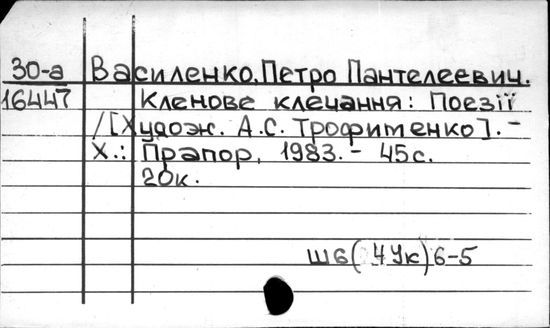 30-а Василенко, Петро Пантелеевич.
16447 Кленове клечання: Поезії
/[Худож. А.С. Трофименко]. –
Х.: Прапор, 1983. – 45с.
20к.
Ш6(4Ук)6-5